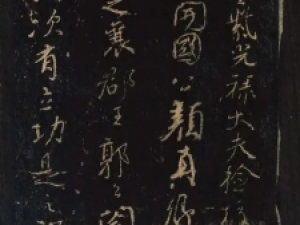 紫光祿大夫檢校
開國公顏真卿
定襄郡王郭公閤
次有立功是之謂